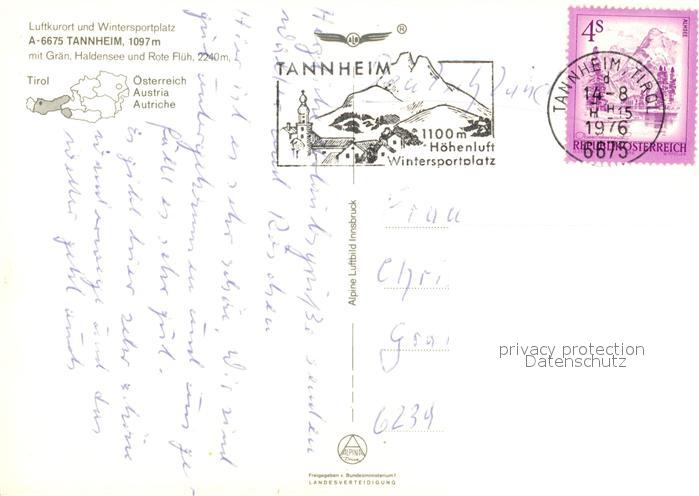 Luftkurort und Wintersportplatz
A-6675 TANNHEIM, 1097 m
mit Grän, Haldensee und Rote Flüh, 2240 m,
Tirol
Österreich
Austria
Autriche
TANNHEIM
1100 m
Höhenluft
Wintersportplatz
®
4S
ALMSEE
REPUBLIK ÖSTERREICH
TANNHEIM TIROL
d
14-8
1976
6675
senden
Hier ist es sehr schön. Wir sind
gut untergekommen und uns ge-
fällt es sehr gut.
Es gibt hier sehr schöne
und das
Wetter geht auch
Alpine Luftbild Innsbruck
Frau
Chri
Gra
6234
privacy protection
Datenschutz
ALPINA
Druck
Freigegeben v. Bundesministerium f.
LANDESVERTEIDIGUNG